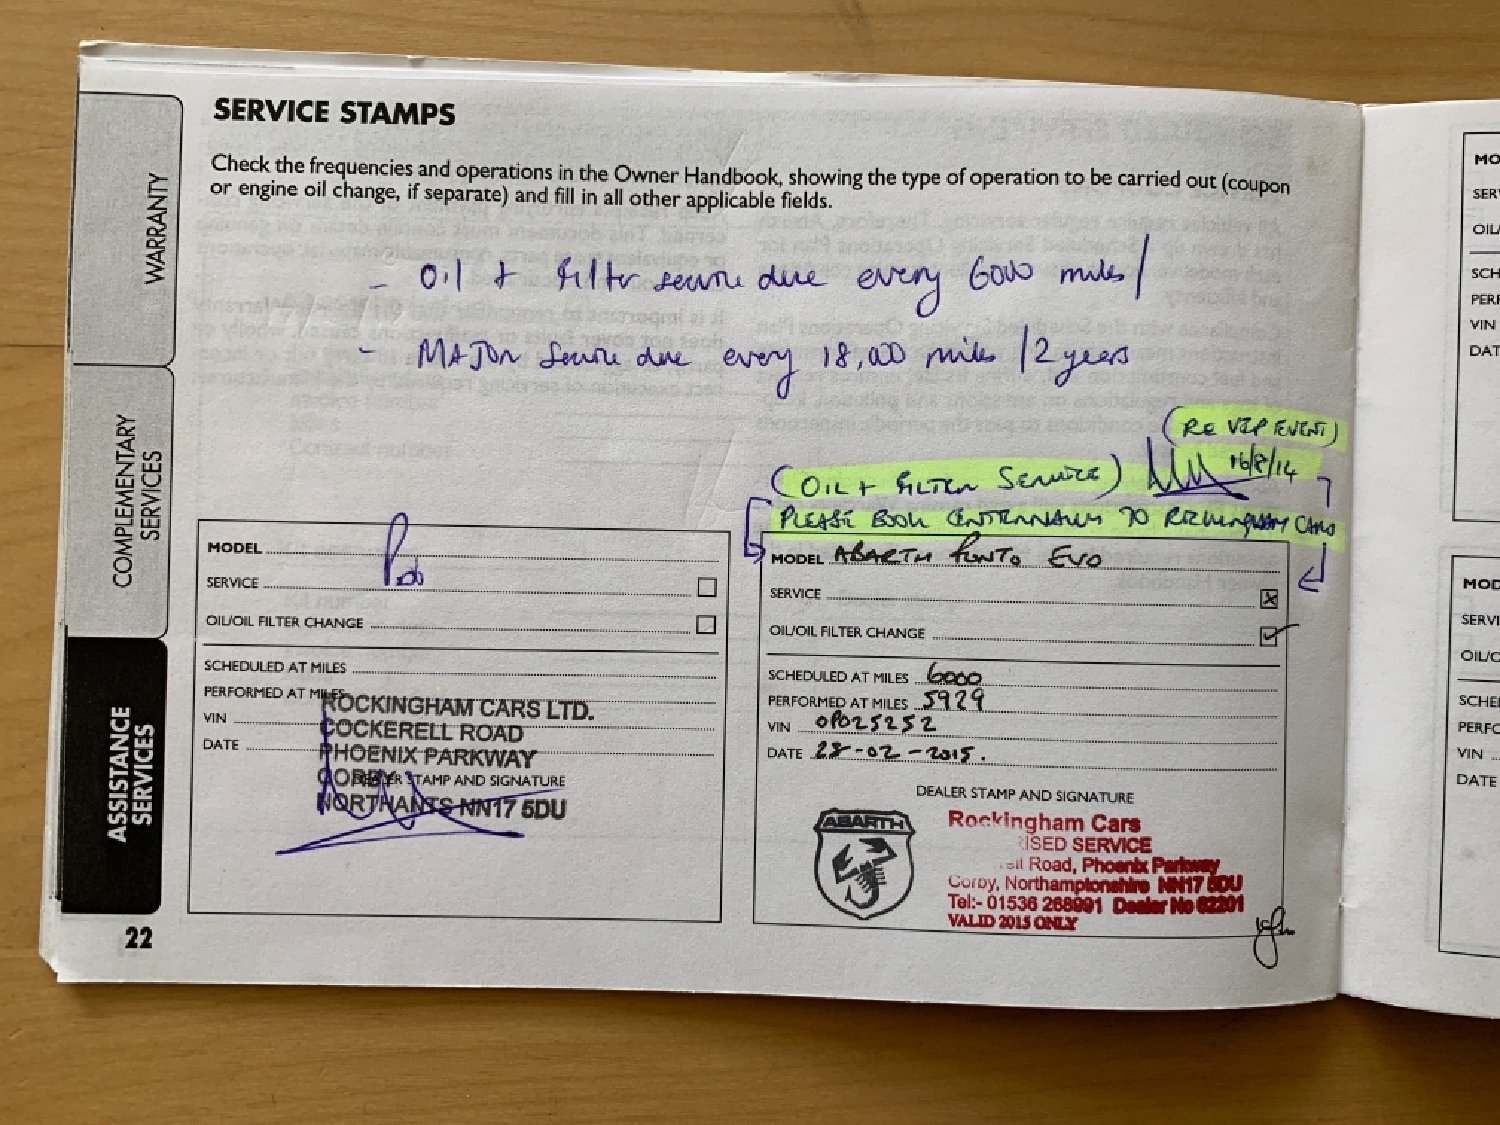 SERVICE STAMPS
Check the frequencies and operations in the Owner Handbook, showing the type of operation to be carried out (coupon
or engine oil change, if separate) and fill in all other applicable fields.
WARRANTY
COMPLEMENTARY
SERVICES
ASSISTANCE
SERVICES
- Oil + Filter service due every 6000 miles/
- MAJOR Service due every 18,000 miles /2 years
(RE VIP EVENT)
(OIL + FILTER SERVICE) 16/8/14
PLEASE BOOK TO ROCKINGHAM CARS
MODEL
SERVICE
OIL/OIL FILTER CHANGE
SCHEDULED AT MILES
PERFORMED AT MILES
VIN
DATE
DEALER STAMP AND SIGNATURE
ROCKINGHAM CARS LTD.
COCKERELL ROAD
PHOENIX PARKWAY
CORBY
NORTHANTS NN17 5DU
MODEL ABARTH PUNTO EVO
SERVICE
OIL/OIL FILTER CHANGE
SCHEDULED AT MILES 6000
PERFORMED AT MILES 5929
VIN 0P025252
DATE 28-02-2015.
DEALER STAMP AND SIGNATURE
ABARTH
Rockingham Cars
RISED SERVICE
ell Road, Phoenix Parkway
Corby, Northamptonshire NN17 5DU
Tel:- 01536 268991 Dealer No 62201
VALID 2015 ONLY
22
MO
SERV
OIL/
SCH
PERF
VIN
DAT
MOD
SERVI
OIL/O
SCHE
PERFO
VIN
DATE